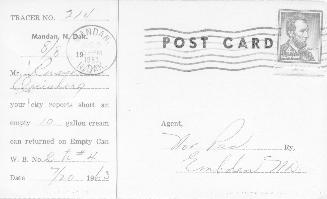 TRACER NO. 214
Mandan, N. Dak.
8/8 19
MANDAN
1963
N. DAK.
POST CARD
Mr.
your city reports short an
empty 10 gallon cream
can returned on Empty Can
W. B. No. 2
Date 7/20 1963
Agent,
Nor Pac Ry.
Embden ND